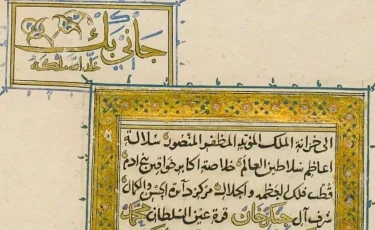 جانی بك
خلد الله ملكه
الی خزانة الملك المؤید المظفر المنصور سلالة
اعاظم سلاطین العالم خلاصة اکابر خواقین بنی ادم
قطب فلك العظمة والجلال مرکز دائرة الحسن والکمال
شرف آل جنکیز خان قرة عین السلطان محمد